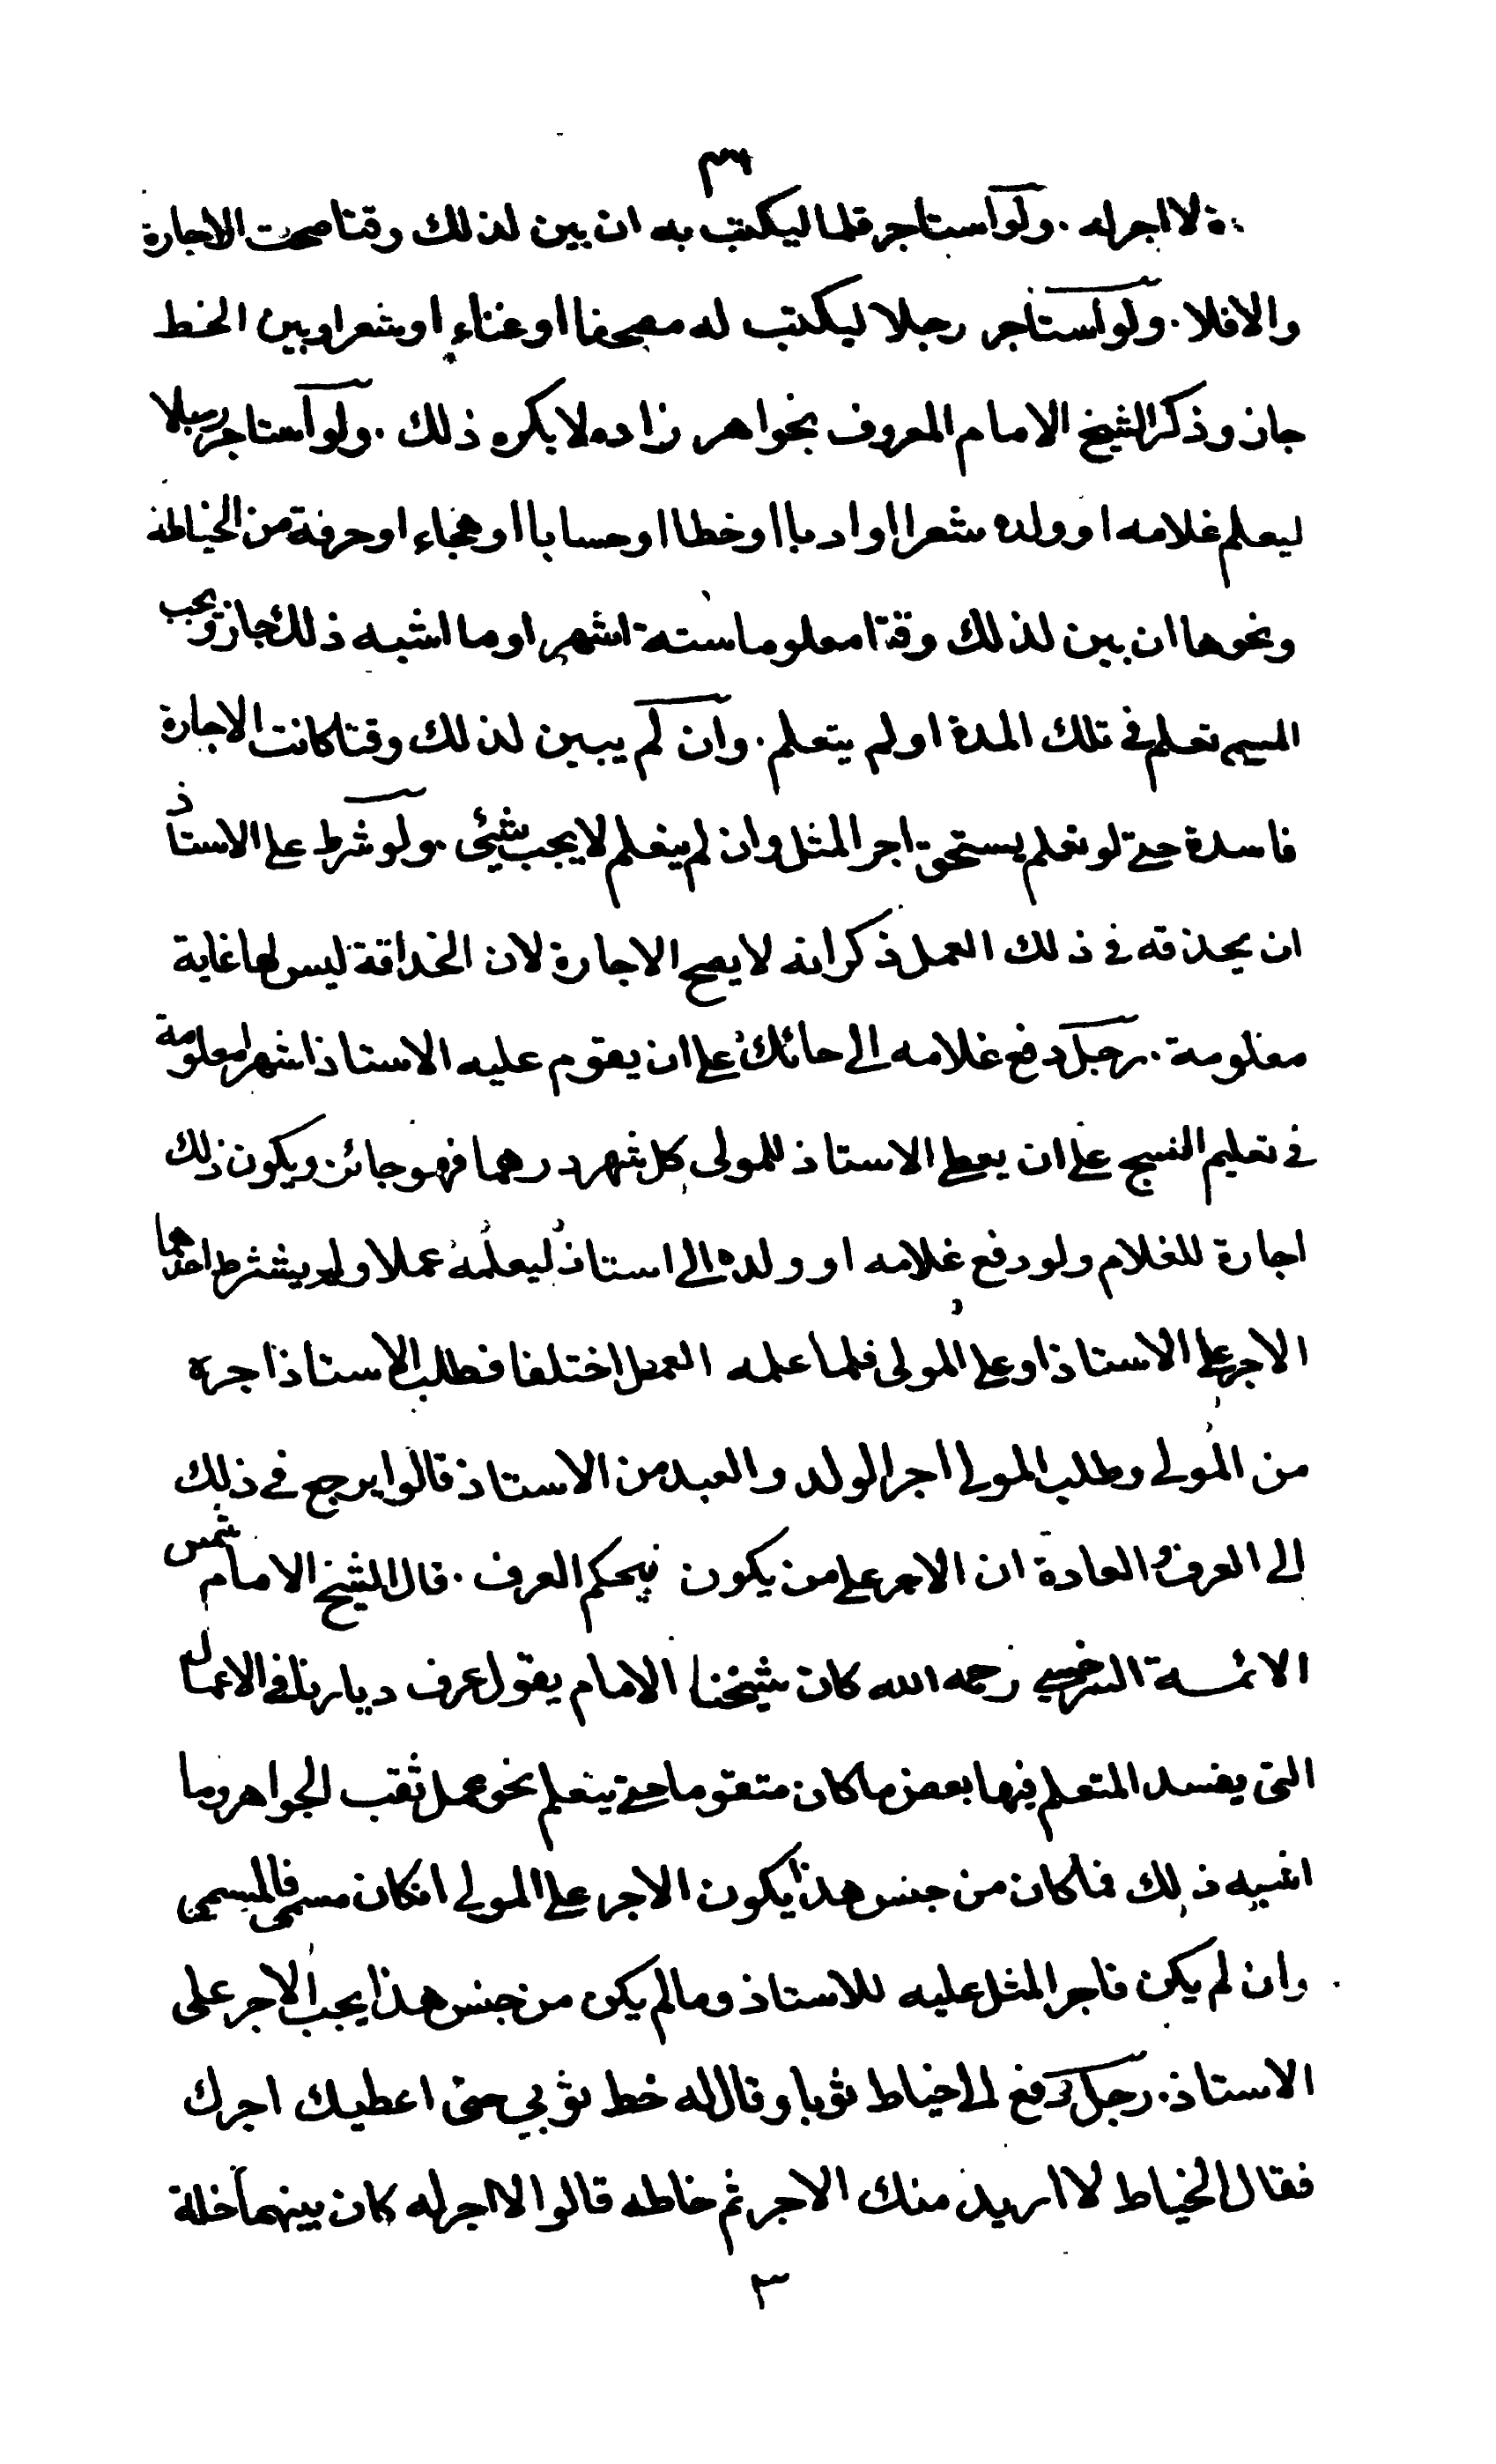 ٣٦
لا اجر له . ولو استاجر قلما ليكتب به ان بين لذلك وقتا صحت الاجارة
والا فلا . ولو استاجر رجلا ليكتب له مصحفا او غناء او شعرا وبين الخط
جاز وذكر الشيخ الامام المعروف بخواهر زاده لا يكره ذلك . ولو استاجر رجلا
ليعلم غلامه او ولده شعرا او ادبا او خطا او حسابا او هجاء او حرفة من الخياطة
ونحوها ان بين لذلك وقتا معلوما ستة اشهر او ما اشبه ذلك جاز ويجب
المسمى تعلم في تلك المدة او لم يتعلم . وان لم يبين لذلك وقتا كانت الاجارة
فاسدة حتى لو تعلم يستحق اجر المثل وان لم يتعلم لا يجب شيئ . ولو شرط على الاستاذ
ان يحذقه في ذلك العمل ذكر انه لا يصح الاجارة لان الحذاقة ليس لها غاية
معلومة . رجل دفع غلامه الى حائك على ان يقوم عليه الاستاذ اشهرا معلومة
في تعليم النسج على ان يعطى الاستاذ للمولى كل شهر درهما فهو جائز ويكون ذلك
اجارة للغلام ولو دفع غلامه او ولده الى استاذ ليعلمه عملا ولم يشترط احدهما
الاجر على الاستاذ او على المولى فلما علمه العمل اختلفا فطلب الاستاذ اجره
من المولى وطلب المولى اجر الولد والعبد من الاستاذ قالوا يرجع في ذلك
الى العرف والعادة ان الاجر على من يكون فيحكم العرف . قال الشيخ الامام شمس
الائمة السرخسي رحمه الله كان شيخنا الامام يقول عرف ديارنا في الاعمال
التى يفسد المتعلم فيها بعض ما كان متقوما حتى يتعلم نحو عمل ثقب الجواهر وما
اشبه ذلك فما كان من جنس هذا يكون الاجر على المولى ان كان مسمى فالمسمى
وان لم يكن فاجر المثل عليه للاستاذ وما لم يكن من جنس هذا يجب الاجر على
الاستاذ . رجل دفع الى خياط ثوبا وقال له خط ثوبي حتى اعطيك اجرك
فقال الخياط لا اريد منك الاجر ثم خاطه قالوا لا اجر له كان بينهما خلة
٣